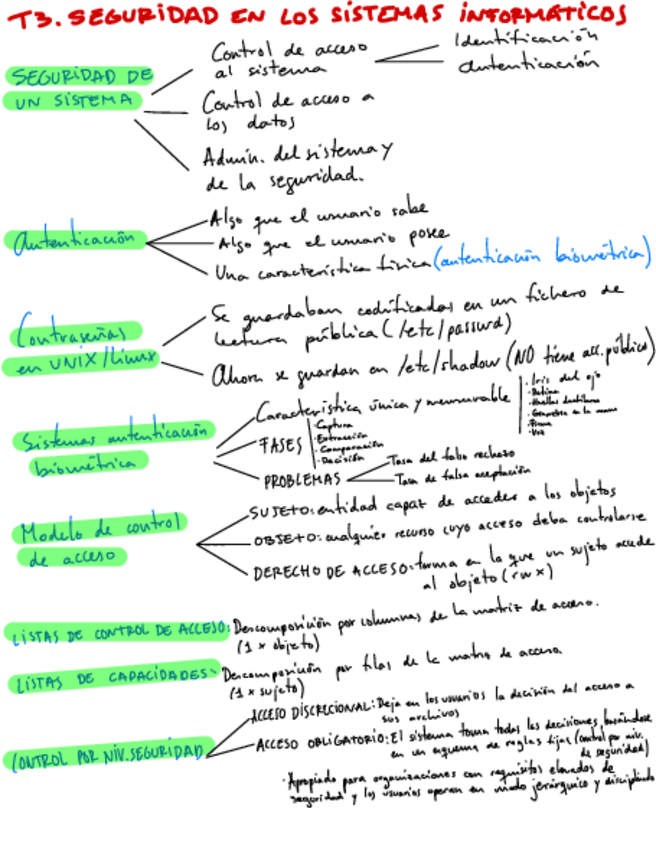 T3. SEGURIDAD EN LOS SISTEMAS INFORMÁTICOS
SEGURIDAD DE
UN SISTEMA
Control de acceso
al sistema
Identificación
Autenticación
Control de acceso a
los datos
Admin. del sistema y
de la seguridad.
Autenticación
Algo que el usuario sabe
Algo que el usuario posee
Una característica física (autenticación biométrica)
Contraseñas
en UNIX/Linux
Se guardaban codificadas en un fichero de
lectura pública (/etc/passwd)
Ahora se guardan en /etc/shadow (NO tiene acc. público)
Sistemas autenticación
biométrica
Característica única y mensurable
· Iris del ojo
· Retina
· Huellas dactilares
· Geometría de la mano
· Firma
· Voz
FASES
· Captura
· Extracción
· Comparación
· Decisión
PROBLEMAS
Tasa del falso rechazo
Tasa de falsa aceptación
Modelo de control
de acceso
SUJETO: entidad capaz de acceder a los objetos
OBJETO: cualquier recurso cuyo acceso deba controlarse
DERECHO DE ACCESO: forma en la que un sujeto accede
al objeto (rwx)
LISTAS DE CONTROL DE ACCESO: Descomposición por columnas de la matriz de acceso.
(1 x objeto)
LISTAS DE CAPACIDADES: Descomposición por filas de la matriz de acceso
(1 x sujeto)
CONTROL POR NIV. SEGURIDAD
ACCESO DISCRECIONAL: Deja en los usuarios la decisión del acceso a
sus archivos
ACCESO OBLIGATORIO: El sistema toma todas las decisiones basándose
en un esquema de reglas fijas (control por niv.
de seguridad)
· Apropiado para organizaciones con requisitos elevados de
seguridad y los usuarios operan en modo jerárquico y disciplinado